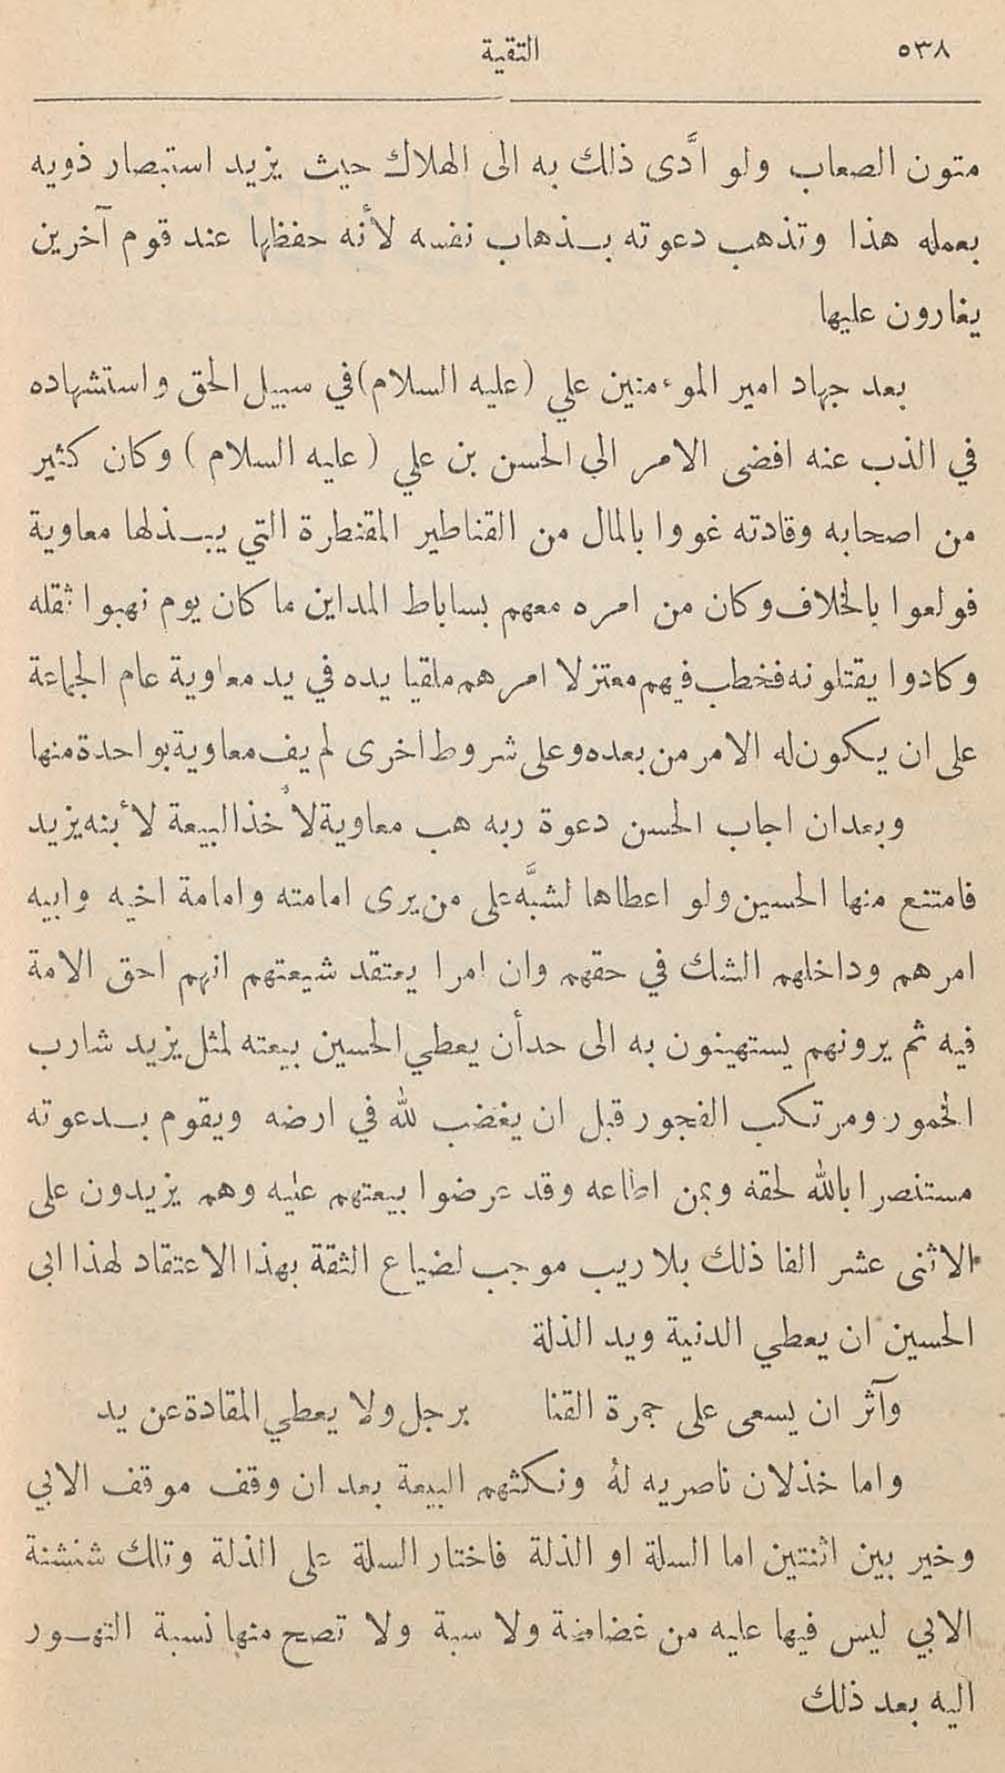 ٥٣٨ التقية
متون الصعاب ولو ادَّى ذلك به الى الهلاك حيث يزيد استبصار ذويه
بعمله هذا وتذهب دعوته بذهاب نفسه لأنه حفظها عند قوم آخرين
يغارون عليها
بعد جهاد امير الموءمنين علي (عليه السلام) في سبيل الحق واستشهاده
في الذب عنه افضى الامر الى الحسن بن علي (عليه السلام) وكان كثير
من اصحابه وقادته غووا بالمال من القناطير المقنطرة التي يبذلها معاوية
فولعوا بالخلاف وكان من امره معهم بساباط المداين ما كان يوم نهبوا ثقله
وكادوا يقتلونه فخطب فيهم معتزلا امرهم ملقيا يده في يد معاوية عام الجماعة
على ان يكون له الامر من بعده وعلى شروط اخرى لم يف معاوية بواحدة منها
وبعد ان اجاب الحسن دعوة ربه هب معاوية لأخذ البيعة لأبنه يزيد
فامتنع منها الحسين ولو اعطاها لشبَّه على من يرى امامته وامامة اخيه وابيه
امرهم وداخلهم الشك في حقهم وان امرا يعتقد شيعتهم انهم احق الامة
فيه ثم يرونهم يستهينون به الى حد أن يعطي الحسين بيعته لمثل يزيد شارب
الخمور ومرتكب الفجور قبل ان يغضب لله في ارضه ويقوم بدعوته
مستنصرا بالله لحقه وبمن اطاعه وقد عرضوا بيعتهم عليه وهم يزيدون على
الاثنى عشر الفا ذلك بلا ريب موجب لضياع الثقة بهذا الاعتقاد لهذا ابى
الحسين ان يعطي الدنية ويد الذلة
وآثر ان يسعى على جمرة القنا برجل ولا يعطي المقادة عن يد
واما خذلان ناصريه له ونكثهم البيعة بعد ان وقف موقف الابي
وخير بين اثنتين اما السلة او الذلة فاختار السلة على الذلة وتلك شنشنة
الابي ليس فيها عليه من غضاضة ولا سبة ولا تصح منها نسبة التهور
اليه بعد ذلك